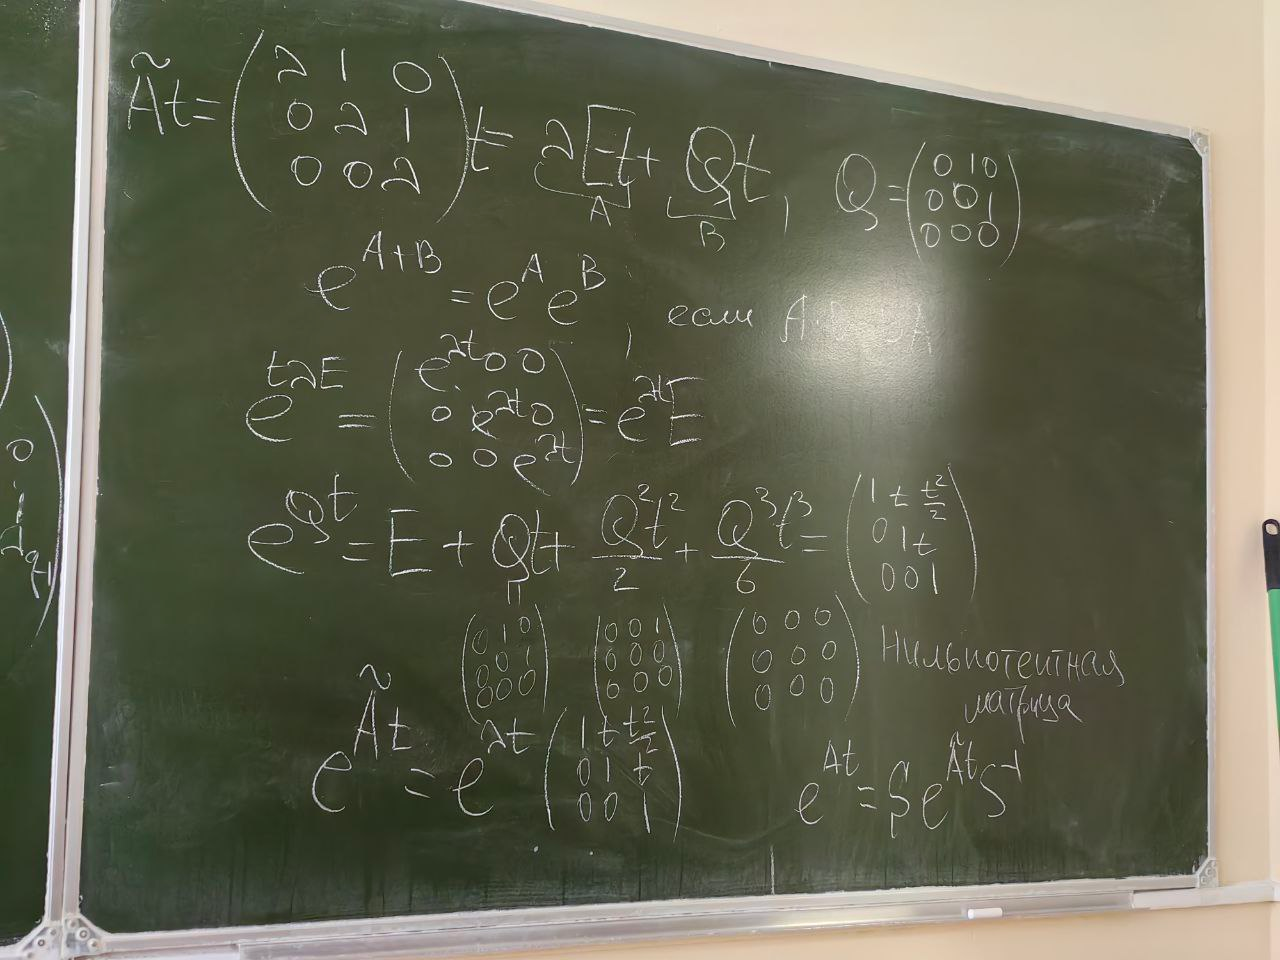 Ãt = (2 1 0; 0 2 1; 0 0 2) t = 2Et + Qt, Q = (0 1 0; 0 0 1; 0 0 0)
A B
e^{A+B} = e^A e^B, если A·B = BA
e^{t2E} = (e^{2t} 0 0; 0 e^{2t} 0; 0 0 e^{2t}) = e^{2t}E
e^{Qt} = E + Qt + Q²t²/2 + Q³t³/6 = (1 t t²/2; 0 1 t; 0 0 1)
(0 1 0; 0 0 1; 0 0 0) (0 0 1; 0 0 0; 0 0 0) (0 0 0; 0 0 0; 0 0 0) Нильпотентная
матрица
e^{Ãt} = e^{2t} (1 t t²/2; 0 1 t; 0 0 1) e^{At} = S e^{Ãt} S^{-1}